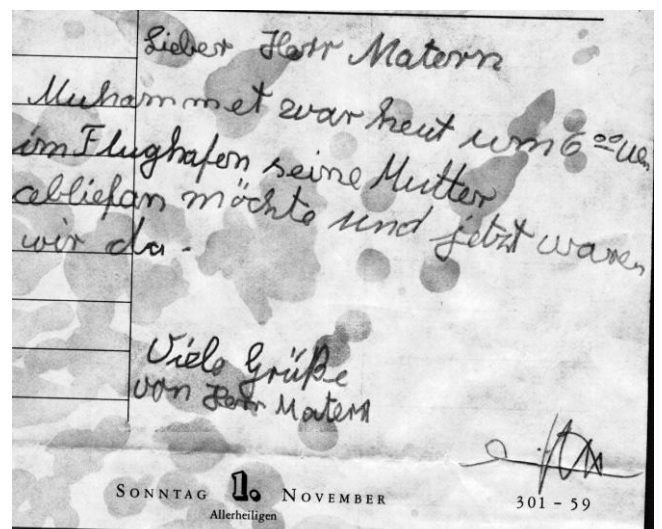 Lieber Herr Matern
Muhammet war heut um 6 00 Uer
im Flughafen seine Mutter
abliefan möchte und jetzt waren
wir da.
Viele Grüße
von Herr Matern
SONNTAG 1. NOVEMBER
Allerheiligen
301 - 59